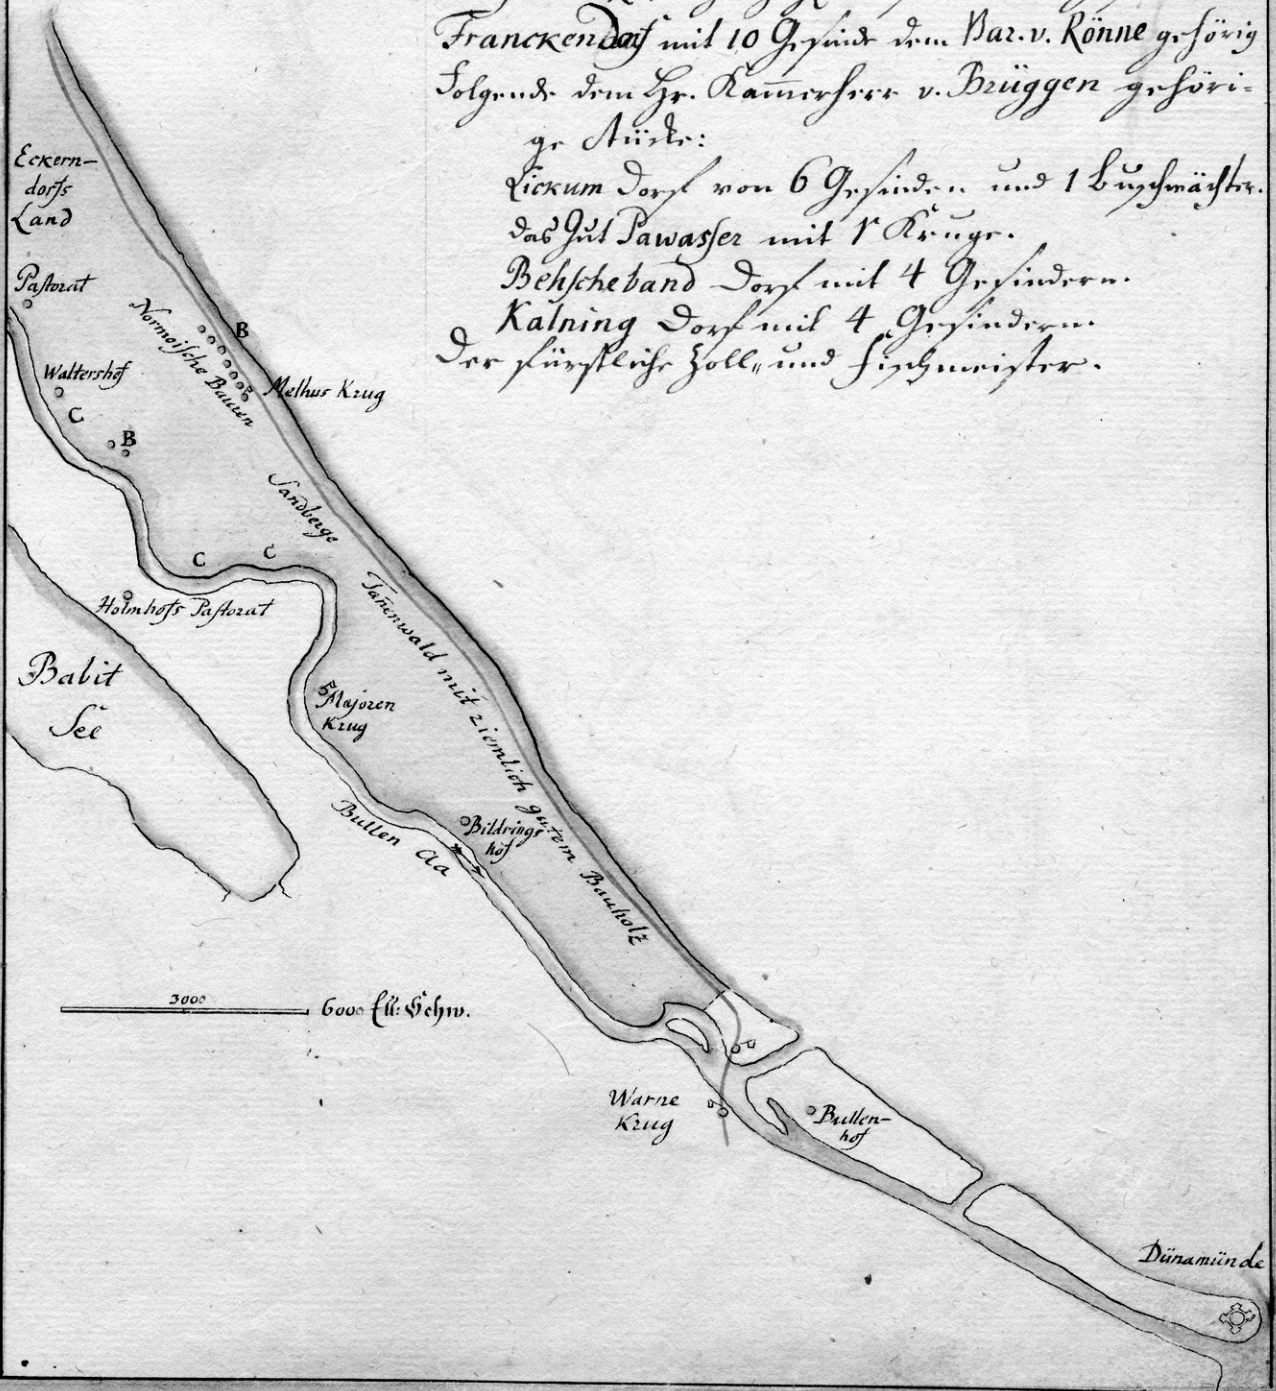 Franckendorf mit 10 Gesinde dem Bar. v. Rönne gehörig
Folgende dem Hr. Kammerherr v. Brüggen gehöri-
ge Stücke:
Lickum Dorf von 6 Gesinden und 1 Buschwächter.
das Gut Pawasser mit 1 Kruge.
Behscheband Dorf mit 4 Gesindern.
Kalning Dorf mit 4 Gesindern.
Der fürstliche Zoll- und Fischmeister.
Eckern-
dorfs
Land
Pastorat
Normeische Bauren
B
Melhus Krug
Waltershof
C
B
Sandberge
C
C
Holmhofs Pastorat
Tanenwald mit ziemlich gutem Bauholz
Babit
See
Majoren
Krug
Bullen Aa
Bildrings
hof
3000
6000 Ell: Schw.
Warne
Krug
Bullen-
hof
Dünamünde